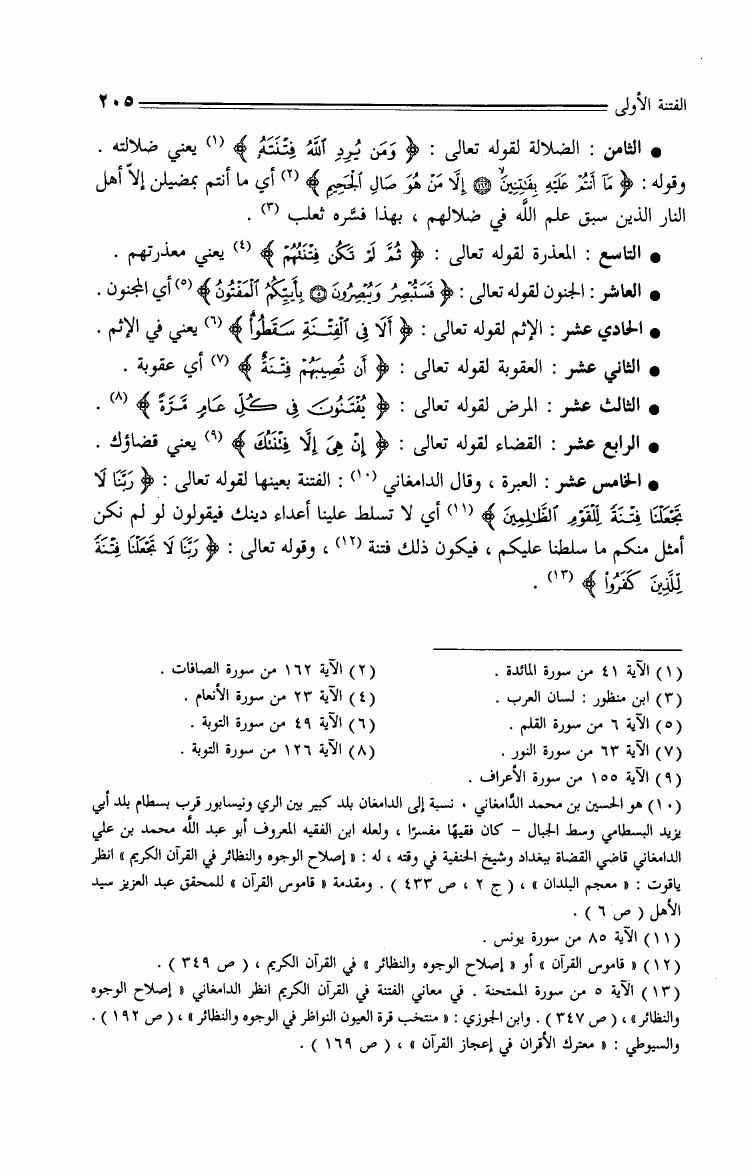 الفتنة الأولى ٢٠٥
● الثامن : الضلالة لقوله تعالى : ﴿ وَمَن يُرِدِ ٱللَّهُ فِتْنَتَهُۥ ﴾ (١) يعني ضلالته .
وقوله : ﴿ مَآ أَنتُمْ عَلَيْهِ بِفَٰتِنِينَ ۝١٦٢ إِلَّا مَنْ هُوَ صَالِ ٱلْجَحِيمِ ﴾ (٢) أي ما أنتم بمضيلن إلاّ أهل
النار الذين سبق علم اللَّه في ضلالهم ، بهذا فسَّره ثعلب (٣) .
● التاسع : المعذرة لقوله تعالى : ﴿ ثُمَّ لَمْ تَكُن فِتْنَتُهُمْ ﴾ (٤) يعني معذرتهم .
● العاشر : الجنون لقوله تعالى : ﴿ فَسَتُبْصِرُ وَيُبْصِرُونَ ۝٥ بِأَييِّكُمُ ٱلْمَفْتُونُ ﴾ (٥) أي المجنون .
● الحادي عشر : الإثم لقوله تعالى : ﴿ أَلَا فِى ٱلْفِتْنَةِ سَقَطُوا۟ ﴾ (٦) يعني في الإثم .
● الثاني عشر : العقوبة لقوله تعالى : ﴿ أَن تُصِيبَهُمْ فِتْنَةٌ ﴾ (٧) أي عقوبة .
● الثالث عشر : المرض لقوله تعالى : ﴿ يُفْتَنُونَ فِى كُلِّ عَامٍ مَّرَّةً ﴾ (٨) .
● الرابع عشر : القضاء لقوله تعالى : ﴿ إِنْ هِىَ إِلَّا فِتْنَتُكَ ﴾ (٩) يعني قضاؤك .
● الخامس عشر : العبرة ، وقال الدامغاني (١٠) : الفتنة بعينها لقوله تعالى : ﴿ رَبَّنَا لَا
تَجْعَلْنَا فِتْنَةً لِّلْقَوْمِ ٱلظَّٰلِمِينَ ﴾ (١١) أي لا تسلط علينا أعداء دينك فيقولون لو لم نكن
أمثل منكم ما سلطنا عليكم ، فيكون ذلك فتنة (١٢) ، وقوله تعالى : ﴿ رَبَّنَا لَا تَجْعَلْنَا فِتْنَةً
لِّلَّذِينَ كَفَرُوا۟ ﴾ (١٣) .
(١) الآية ٤١ من سورة المائدة . (٢) الآية ١٦٢ من سورة الصافات .
(٣) ابن منظور : لسان العرب . (٤) الآية ٢٣ من سورة الأنعام .
(٥) الآية ٦ من سورة القلم . (٦) الآية ٤٩ من سورة التوبة .
(٧) الآية ٦٣ من سورة النور . (٨) الآية ١٢٦ من سورة التوبة .
(٩) الآية ١٥٥ من سورة الأعراف .
(١٠) هو الحسين بن محمد الدَّامغاني . نسبة إلى الدامغان بلد كبير بين الري ونيسابور قرب بسطام بلد أبي
يزيد البسطامي وسط الجبال – كان فقيهًا مفسرًا ، ولعله ابن الفقيه المعروف أبو عبد اللَّه محمد بن علي
الدامغاني قاضي القضاة ببغداد وشيخ الحنفية في وقته ، له : « إصلاح الوجوه والنظائر في القرآن الكريم » انظر
ياقوت : « معجم البلدان » ، ( ج ٢ ، ص ٤٣٣ ) . ومقدمة « قاموس القرآن » للمحقق عبد العزيز سيد
الأهل ( ص ٦ ) .
(١١) الآية ٨٥ من سورة يونس .
(١٢) « قاموس القرآن » أو « إصلاح الوجوه والنظائر » في القرآن الكريم ، ( ص ٣٤٩ ) .
(١٣) الآية ٥ من سورة الممتحنة . في معاني الفتنة في القرآن الكريم انظر الدامغاني « إصلاح الوجوه
والنظائر» ، ( ص ٣٤٧ ) . وابن الجوزي : « منتخب قرة العيون النواظر في الوجوه والنظائر » ، ( ص ١٩٢ ) .
والسيوطي : « معترك الأقران في إعجاز القرآن » ، ( ص ١٦٩ ) .